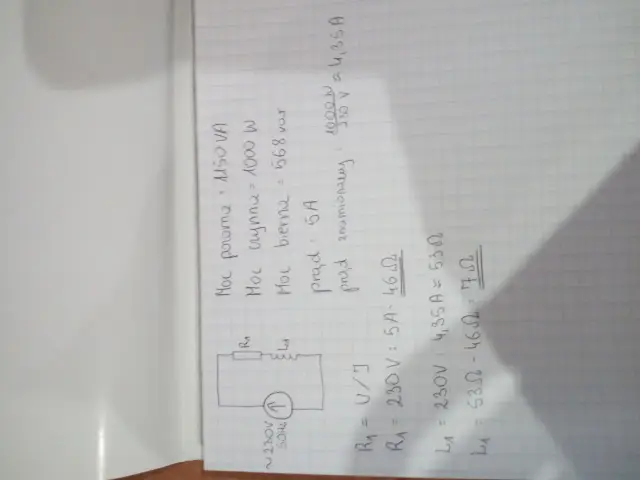 Moc pozorna = 1150 VA
Moc czynna = 1000 W
Moc bierna = 568 var
prąd = 5A
prąd znamionowy = 1000W / 230 V = 4,35A
R1
L1
~230V
50Hz
R1 = U/I
R1 = 230V : 5A = 46Ω
L1 = 230V : 4,35A = 53Ω
L1 = 53Ω - 46Ω = 7Ω